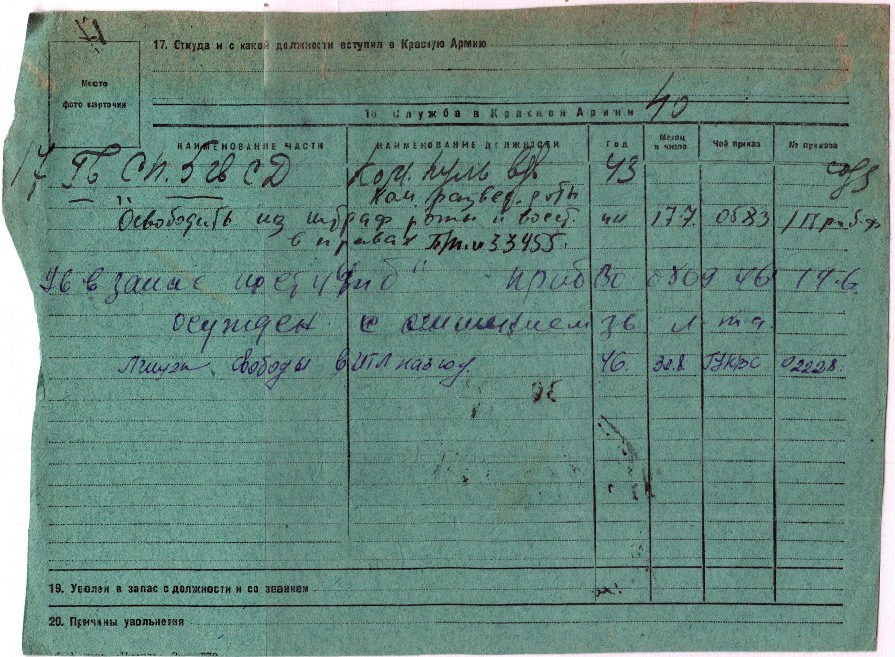 17. Откуда и с какой должности вступил в Красную Армию
Место
фото карточки
18. Служба в Красной Армии 40
НАИМЕНОВАНИЕ ЧАСТИ НАИМЕНОВАНИЕ ДОЛЖНОСТИ Год Месяц и число Чей приказ № приказа
17 Гв СП. 5 гв СД Ком. пуль 43
Ком. развед. роты
Освободить из штраф роты и восст. 17.7. 0583
в правах Пр. 33455.
Ув в запас по ст 43 п б" ПрибВО 0809 46 14.6.
осужден с снятием зв л-та.
Лишен свободы в ИТЛ на 10 46. 30.8 02228.
19. Уволен в запас с должности и со званием
20. Причины увольнения